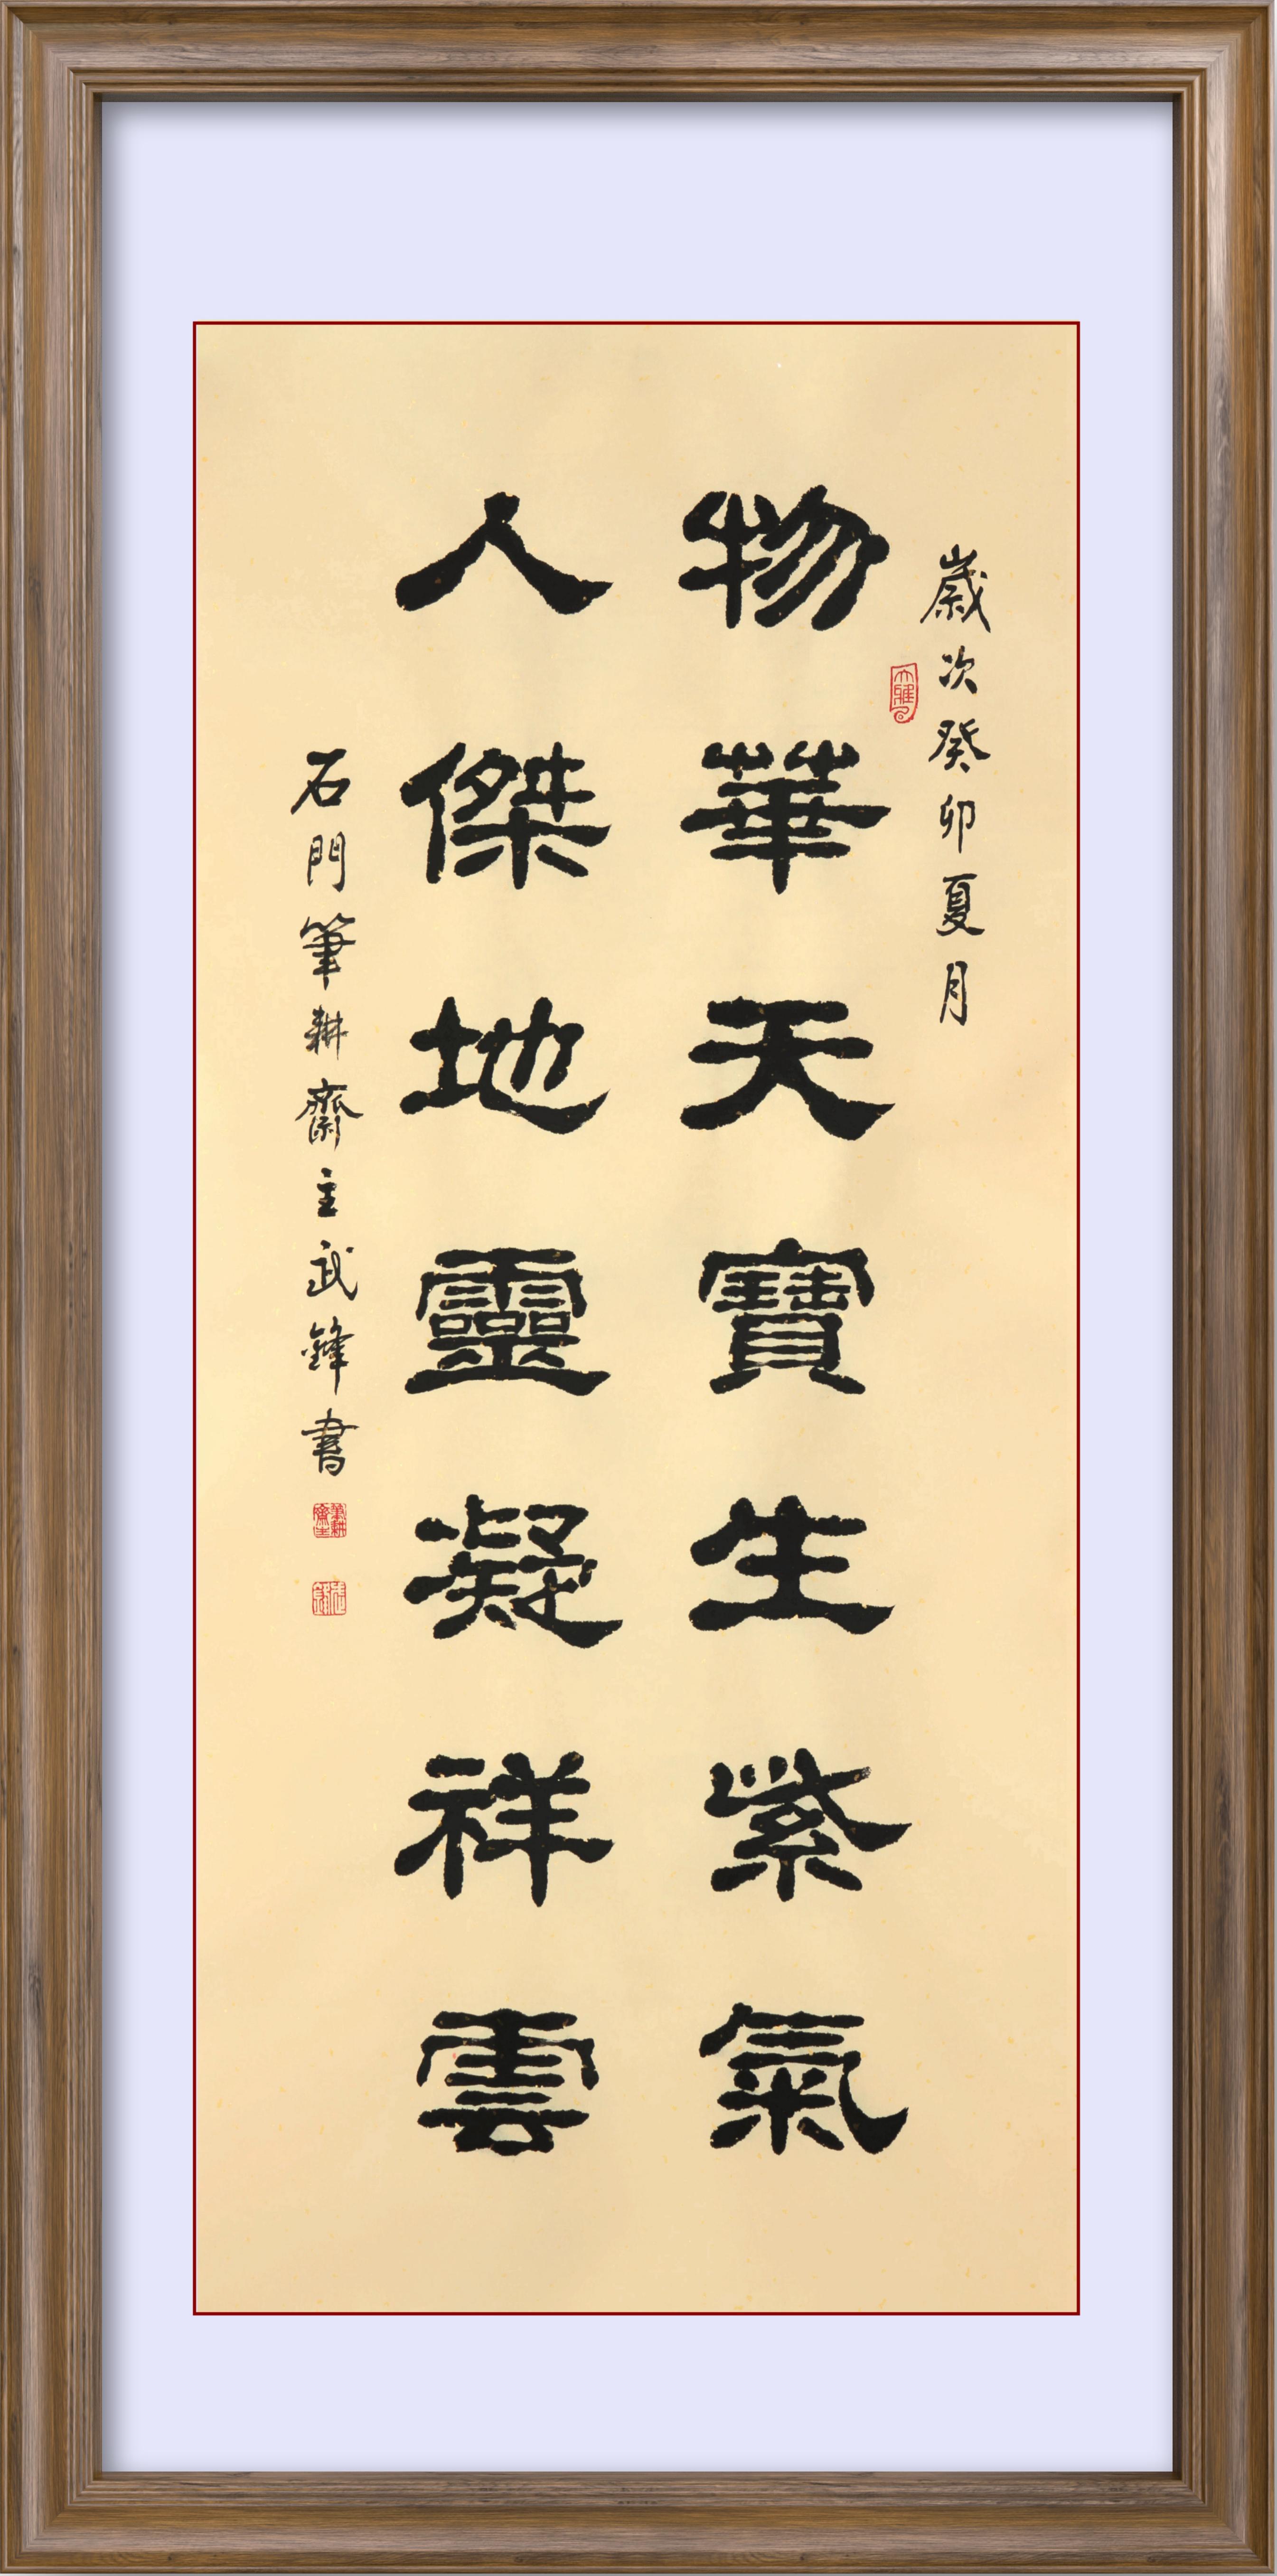 歲次癸卯夏月
物華天寶生紫氣
人傑地靈凝祥雲
石門筆耕齋主武鋒書
大雅
筆耕齋主